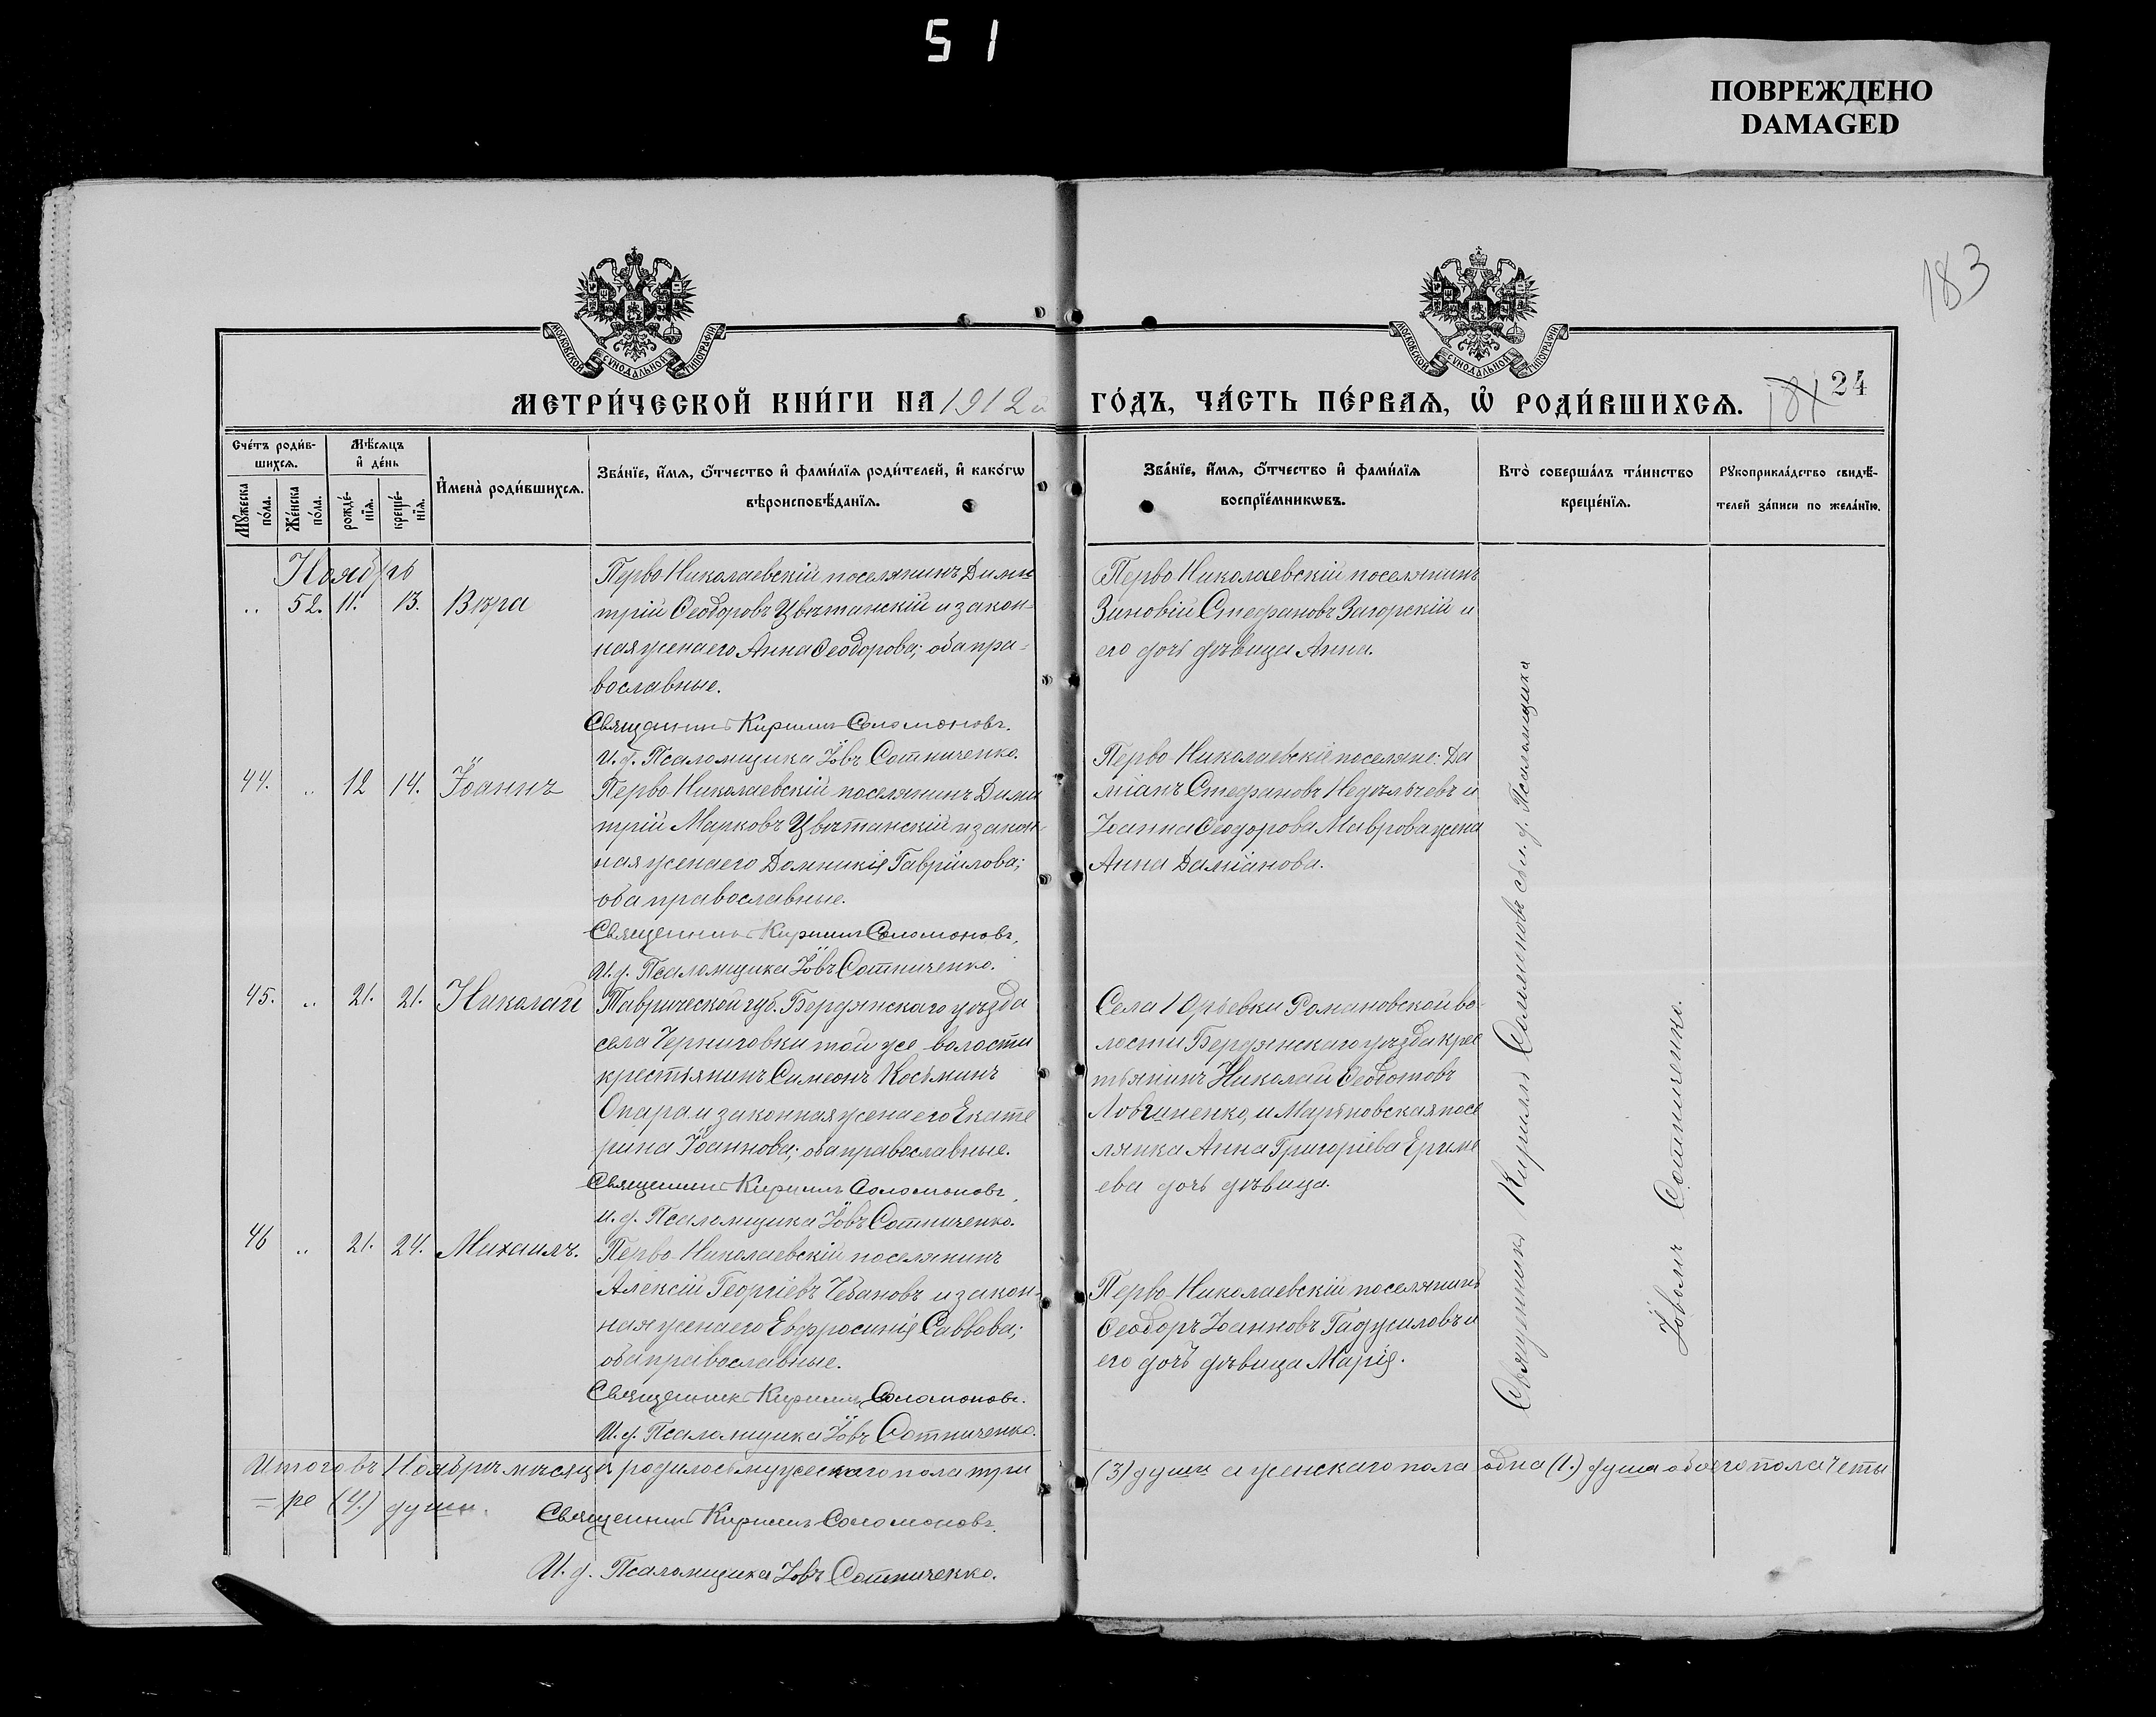 51
ПОВРЕЖДЕНО
DAMAGED
183
МЕТРИ́ЧЕСКОЙ КНИ́ГИ НА 1912 й
ГО́ДЪ, ЧА́СТЬ ПЕ́РВАѦ, Ѡ РОДИ́ВШИХСѦ.
181 24
Сче́тъ роди́в-
шихсѧ.
Мѣ́сѧцъ
и҆ де́нь
Мꙋ́жеска
по́ла.
Же́нска
по́ла.
рожде́-
нїѧ.
креще́-
нїѧ.
И҆мена̀ роди́вшихсѧ.
Зва́нїе, и҆́мѧ, ѻ҆́тчество и҆ фами́лїѧ роди́телей, и҆ како́гѡ
вѣроисповѣ́данїѧ.
Зва́нїе, и҆́мѧ, ѻ҆́тчество и҆ фами́лїѧ
воспрїе́мникѡвъ.
Кто̀ соверша́лъ та́инство
креще́нїѧ.
Рꙋкоприкла́дство свидѣ́-
телей за́писи по жела́нїю.
Ноябрь
„ 52. 11. 13. Вѣра
Перво Николаевскій поселянинъ Дими
трій Ѳеодоровъ Цвѣтанскій и закон-
ная жена его Анна Ѳеодорова; оба пра-
вославные.
Священникъ Кириллъ Соломоновъ.
И. д. Псаломщика Іовъ Сотниченко.
Перво Николаевскій поселянинъ
Зиновій Стефановъ Загорскій и
его дочь дѣвица Анна.
44. „ 12 14. Іоаннъ
Перво Николаевскій поселянинъ Дими
трій Марковъ Цвѣтанскій и закон-
ная жена его Домникія Гавріилова;
оба православные.
Священникъ Кириллъ Соломоновъ.
И. д. Псаломщика Іовъ Сотниченко.
Перво-Николаевскіе поселяне: Да
міанъ Стефановъ Недѣльчевъ и
Іоанна Ѳеодорова Маврова жена
Анна Даміанова.
45. „ 21. 21. Николай
Таврической губ. Бердянскаго уѣзда
села Черниговки той же волости
крестьянинъ Симеонъ Косьминъ
Опара и законная жена его Екате
рина Іоаннова; оба православные.
Священникъ Кириллъ Соломоновъ.
И. д. Псаломщика Іовъ Сотниченко.
Села Юрьевки Романовской во-
лости Бердянскаго уѣзда крес
тьянинъ Николай Ѳеодотовъ
Ловчиненко, и Маріновская посе
лянка Анна Григоріева Ериме
ева дочь дѣвица.
46 „ 21. 24. Михаилъ.
Перво-Николаевскій поселянинъ
Алексій Георгіевъ Чебановъ и закон-
ная жена его Евфросинія Саввова;
оба православные.
Священникъ Кириллъ Соломоновъ.
И. д. Псаломщика Іовъ Сотниченко.
Перво-Николаевскій поселянинъ
Ѳеодоръ Іоанновъ Гаджиловъ и
его дочь дѣвица Марія.
Священникъ Кириллъ Соломоновъ съ и. д. Псаломщика
Іовомъ Сотниченко.
Итого въ Ноябрѣ мѣсяцѣ родилось мужескаго пола три (3) души а женскаго пола одна (1.) душа обоего пола четы
=ре (4.) души.
Священникъ Кириллъ Соломоновъ.
И. д. Псаломщика Іовъ Сотниченко.